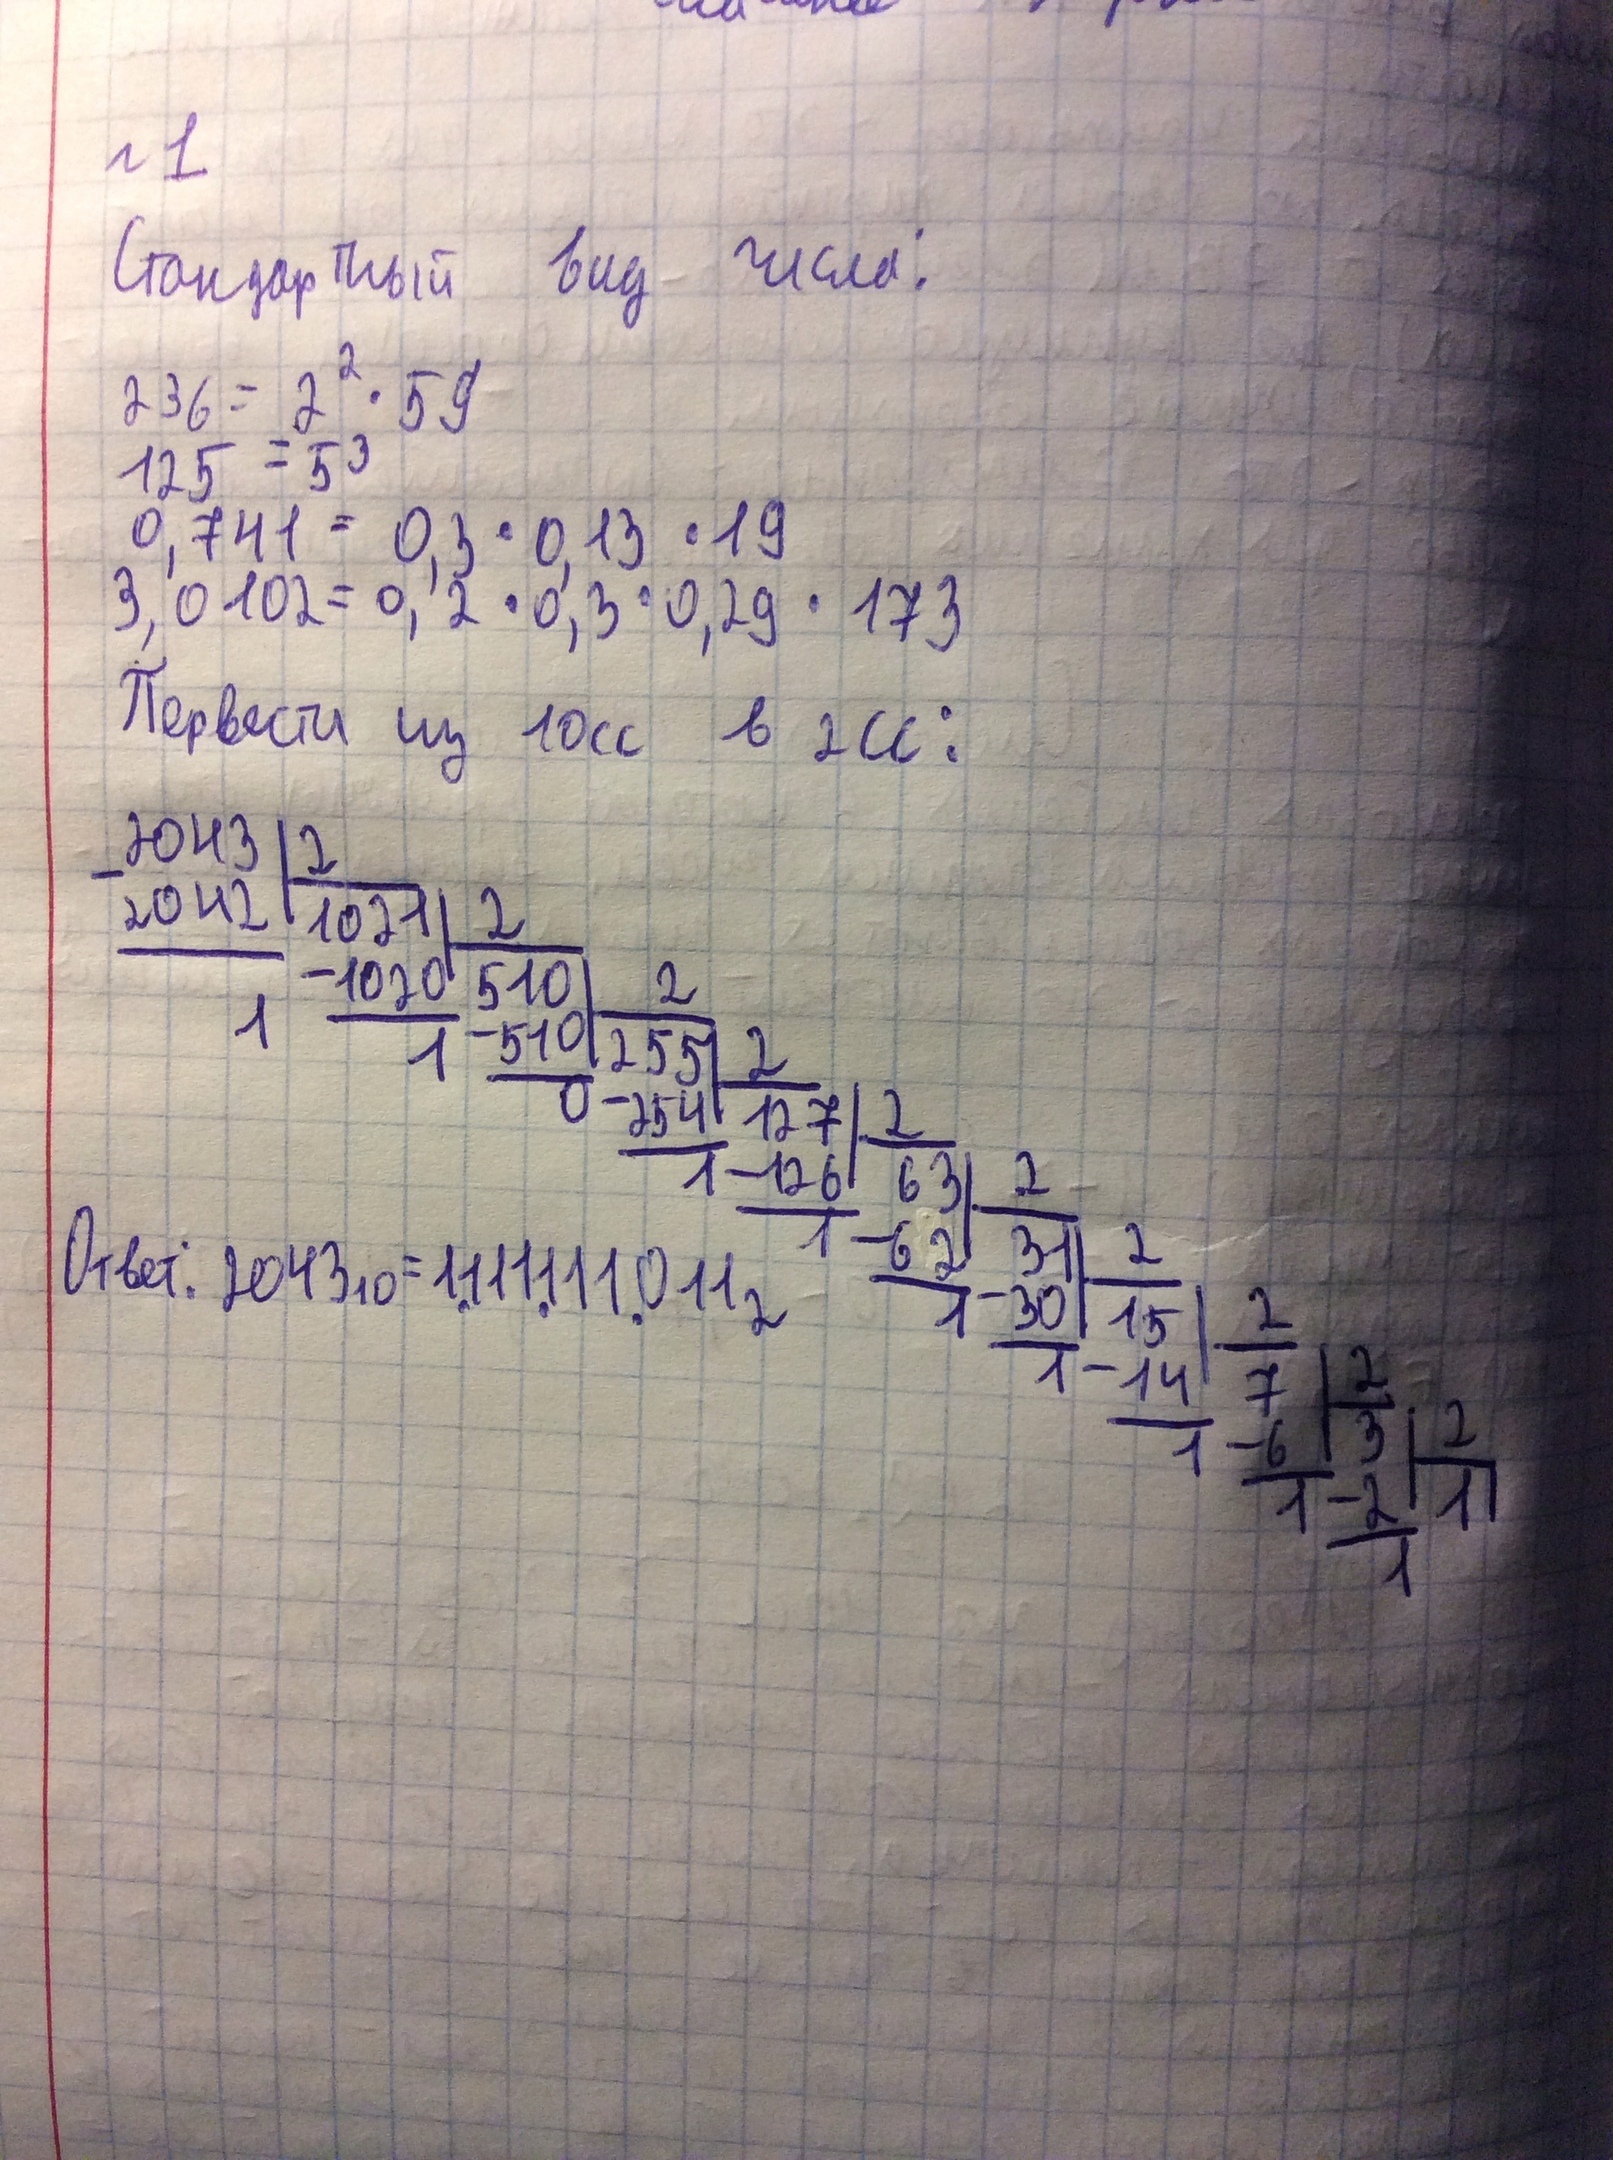 №1
Стандартный вид числа:
236 = 2² · 59
125 = 5³
0,741 = 0,3 · 0,13 · 19
3,0102 = 0,2 · 0,3 · 0,29 · 173
Первести из 10сс в 2СС:
-2043 | 2
2042 | 1021 | 2
1 -1020 | 510 | 2
1 -510 | 255 | 2
0 -254 | 127 | 2
1 -126 | 63 | 2
1 -62 | 31 | 2
1 -30 | 15 | 2
1 -14 | 7 | 2
1 -6 | 3 | 2
1 -2 | 1
1
Ответ: 2043₁₀ = 1.1111.111.011₂